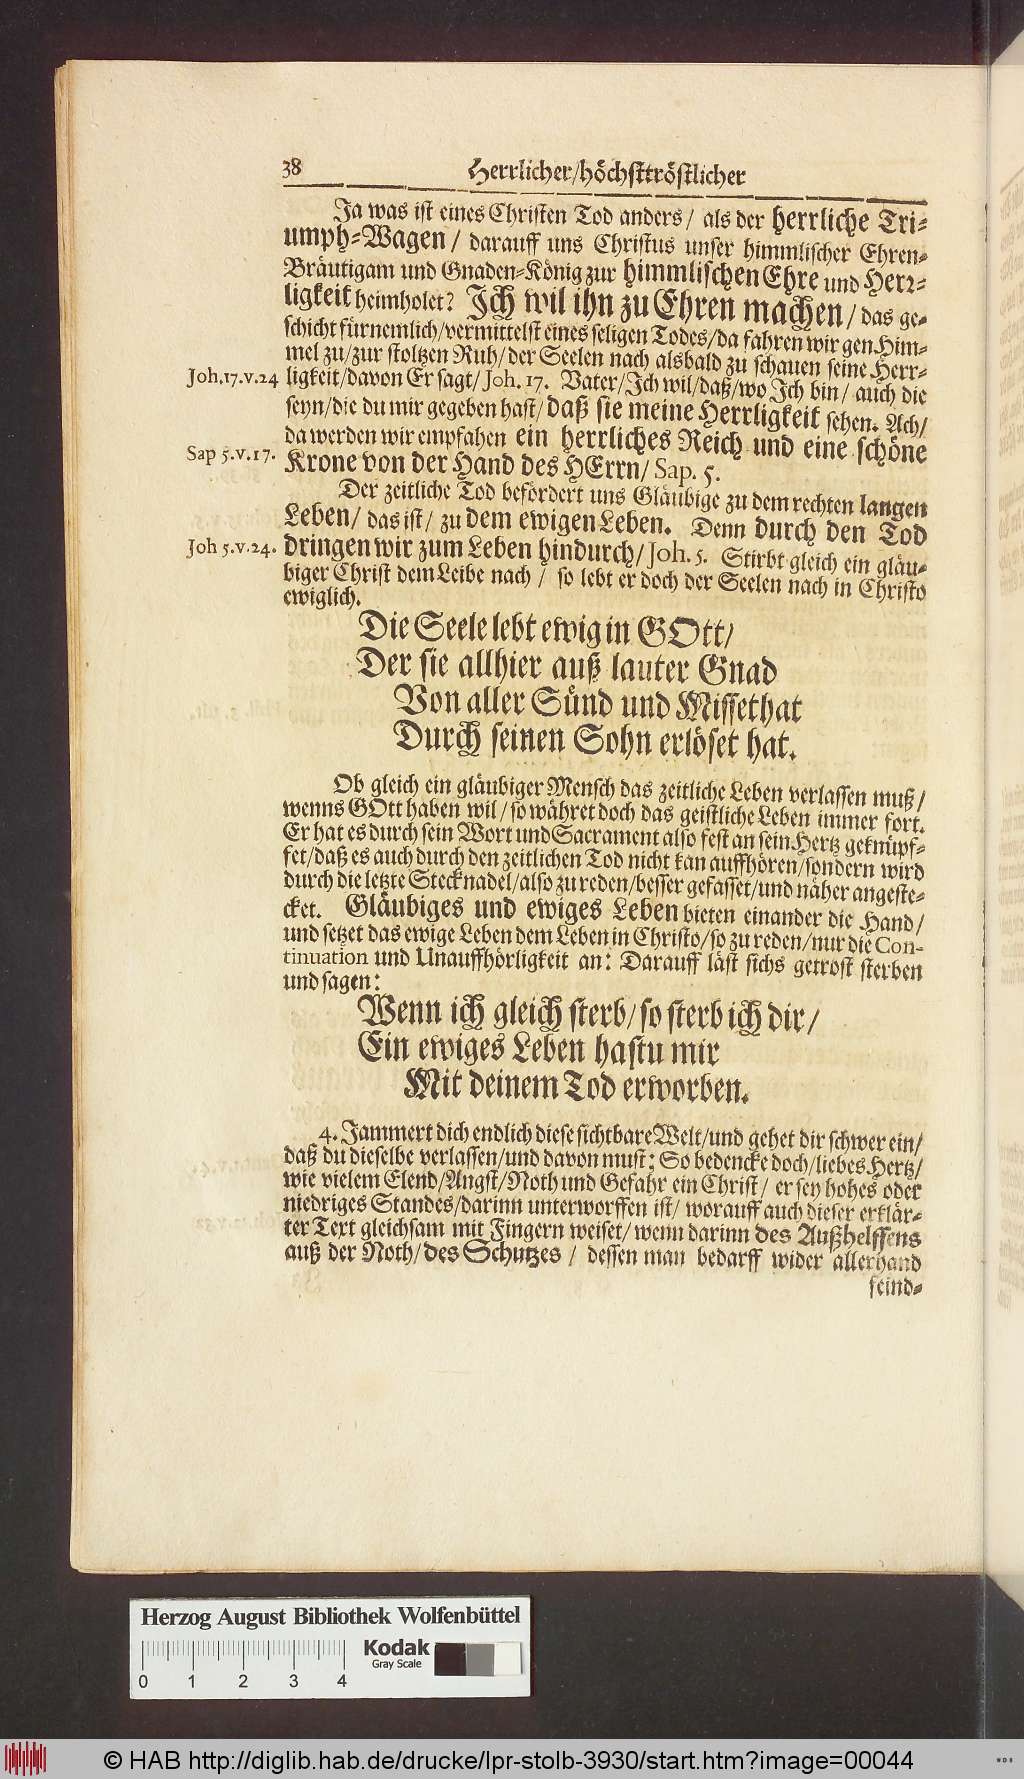 38 Herrlicher/höchsttröstlicher
Ja was ist eines Christen Tod anders/ als der herrliche Tri-
umph-Wagen/ darauff uns Christus unser himmlischer Ehren-
Bräutigam und Gnaden-König zur himmlischen Ehre und Herr-
ligkeit heimholet? Ich wil ihn zu Ehren machen/ das ge-
schicht fürnemlich/vermittelst eines seligen Todes/da fahren wir gen Him-
mel zu/zur stoltzen Ruh/der Seelen nach alsbald zu schauen seine Herr-
Joh.17.v.24 ligkeit/davon Er sagt/Joh. 17. Vater/Ich wil/daß/wo Ich bin/ auch die
seyn/die du mir gegeben hast/daß sie meine Herrligkeit sehen. Ach/
da werden wir empfahen ein herrliches Reich und eine schöne
Sap 5.v.17. Krone von der Hand des HErrn/ Sap. 5.
Der zeitliche Tod befördert uns Gläubige zu dem rechten langen
Leben/ das ist/ zu dem ewigen Leben. Denn durch den Tod
Joh 5.v.24. dringen wir zum Leben hindurch/Joh. 5. Stirbt gleich ein gläu-
biger Christ dem Leibe nach/ so lebt er doch der Seelen nach in Christo
ewiglich.
Die Seele lebt ewig in GOtt/
Der sie allhier auß lauter Gnad
Von aller Sünd und Missethat
Durch seinen Sohn erlöset hat.
Ob gleich ein gläubiger Mensch das zeitliche Leben verlassen muß/
wenns GOtt haben wil/so währet doch das geistliche Leben immer fort.
Er hat es durch sein Wort und Sacrament also fest an sein Hertz geknüpf-
fet/daß es auch durch den zeitlichen Tod nicht kan auffhören/sondern wird
durch die letzte Stecknadel/also zu reden/besser gefasset/und näher angeste-
cket. Gläubiges und ewiges Leben bieten einander die Hand/
und setzet das ewige Leben dem Leben in Christo/so zu reden/nur die Con-
tinuation und Unauffhörligkeit an: Darauff läst sichs getrost sterben
und sagen:
Wenn ich gleich sterb/so sterb ich dir/
Ein ewiges Leben hastu mir
Mit deinem Tod erworben.
4. Jammert dich endlich diese sichtbare Welt/und gehet dir schwer ein/
daß du dieselbe verlassen/und davon must: So bedencke doch/liebes Hertz/
wie vielem Elend/Angst/Noth und Gefahr ein Christ/ er sey hohes oder
niedriges Standes/darinn unterworffen ist/ worauff auch dieser erklär-
ter Text gleichsam mit Fingern weiset/wenn darinn des Außhelffens
auß der Noth/des Schutzes/ dessen man bedarff wider allerhand
feind-
Herzog August Bibliothek Wolfenbüttel
Kodak
Gray Scale
0 1 2 3 4
© HAB http://diglib.hab.de/drucke/lpr-stolb-3930/start.htm?image=00044